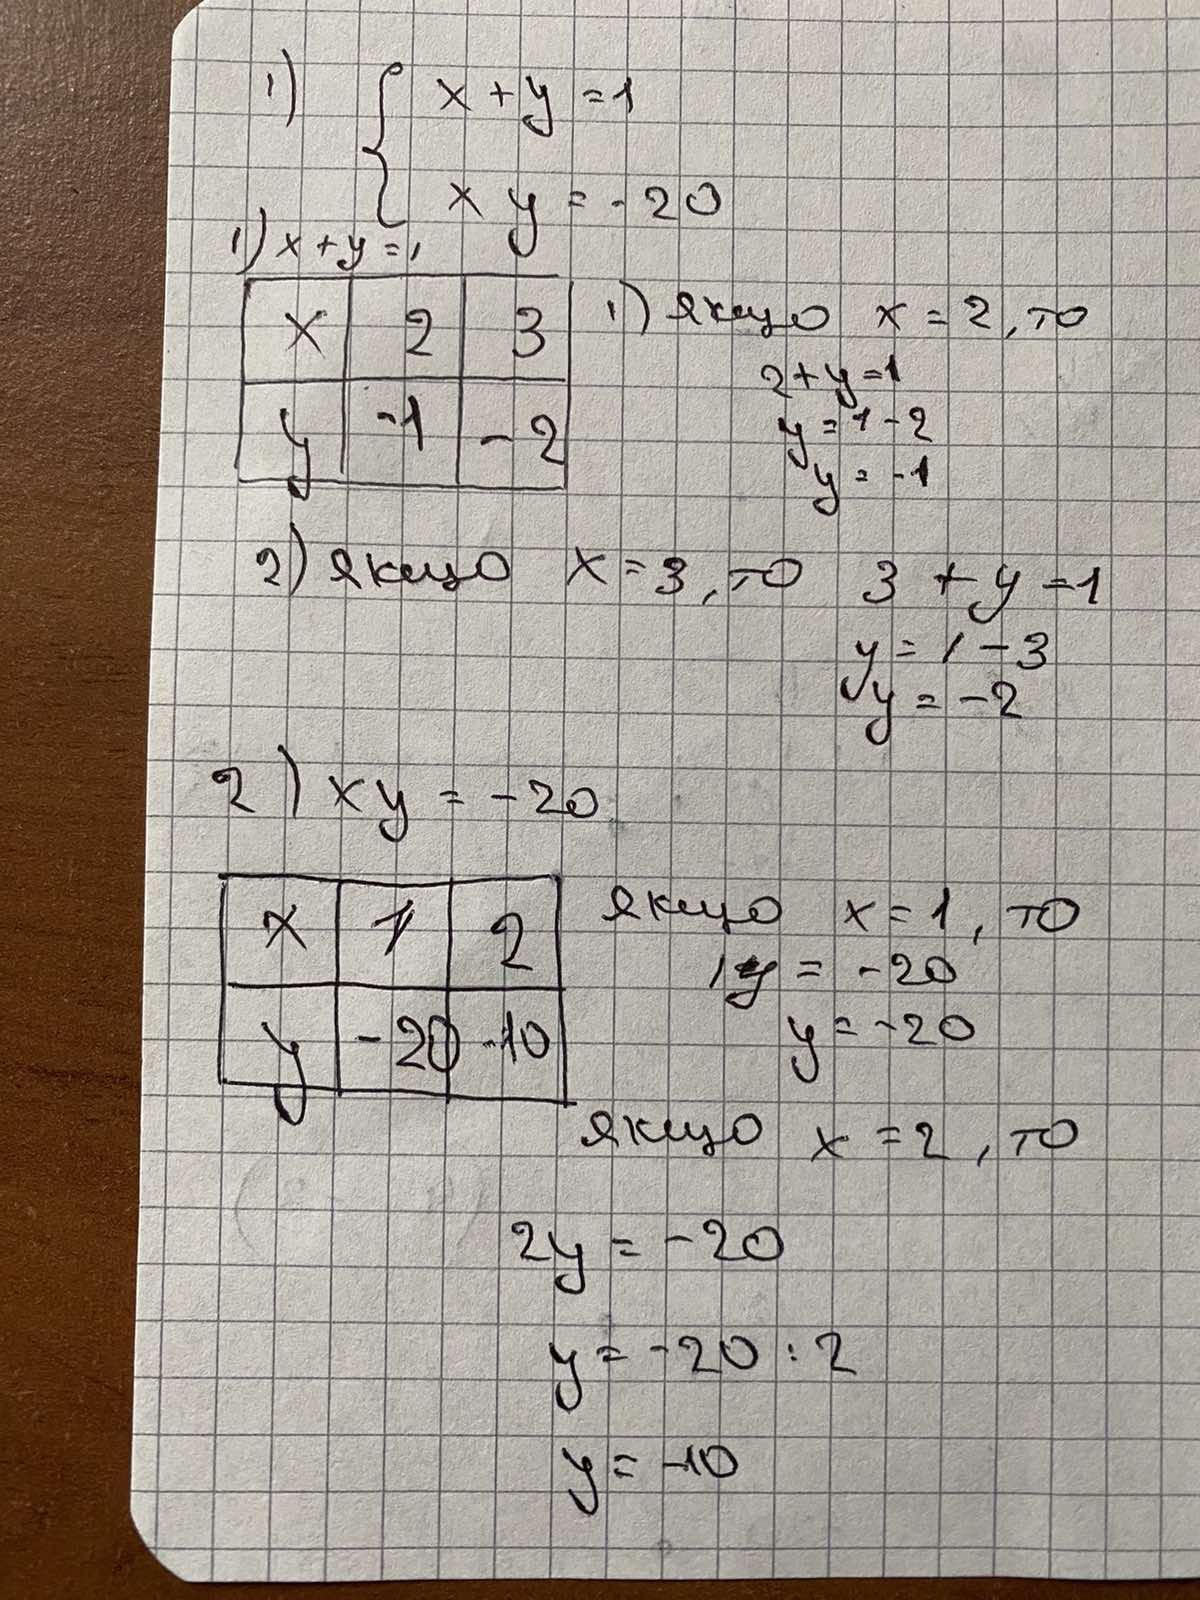 1) { x + y = 1
x y = -20
1) x + y = 1
x 2 3
y -1 -2
1) якщо x = 2, то
2 + y = 1
y = 1 - 2
y = -1
2) якщо x = 3, то 3 + y = 1
y = 1 - 3
y = -2
2) xy = -20
x 1 2
y -20 -10
якщо x = 1, то
1y = -20
y = -20
якщо x = 2, то
2y = -20
y = -20 : 2
y = -10